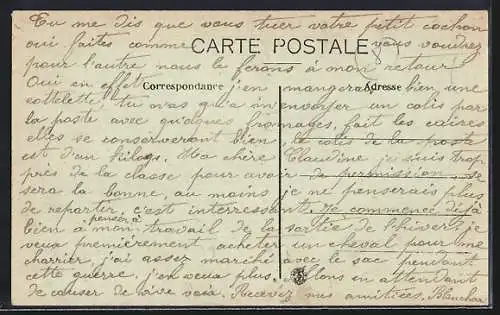 Tu me dis que vous tuer votre petit cochon
oui faites comme CARTE POSTALE vous voudrez
pour l'autre nous le ferons à mon retour
Oui en effet Correspondance j'en mangerai Adresse bien une
cottelette, tu n'as qu'a m'envoyer un colis par
la poste avec quelques fromages, fait les cuires
elles se conserveront bien, le colis de la poste
est d'un kilogs. Ma chère Claudine je suis trop
près de la classe pour avoir de permission, se
sera la bonne, au moins je ne penserais plus
de repartir, c'est interressant. Je commence déjà
pensér à
bien à mon travail de la sortie de l'hivert je
veux premièrement, acheter un cheval pour me
charrier, j'ai assez marché avec le sac pendant
cette guerre, j'en veux plus. Allons en attendant
de causer de vive voix. Recevez mes amitiées. Blanchon